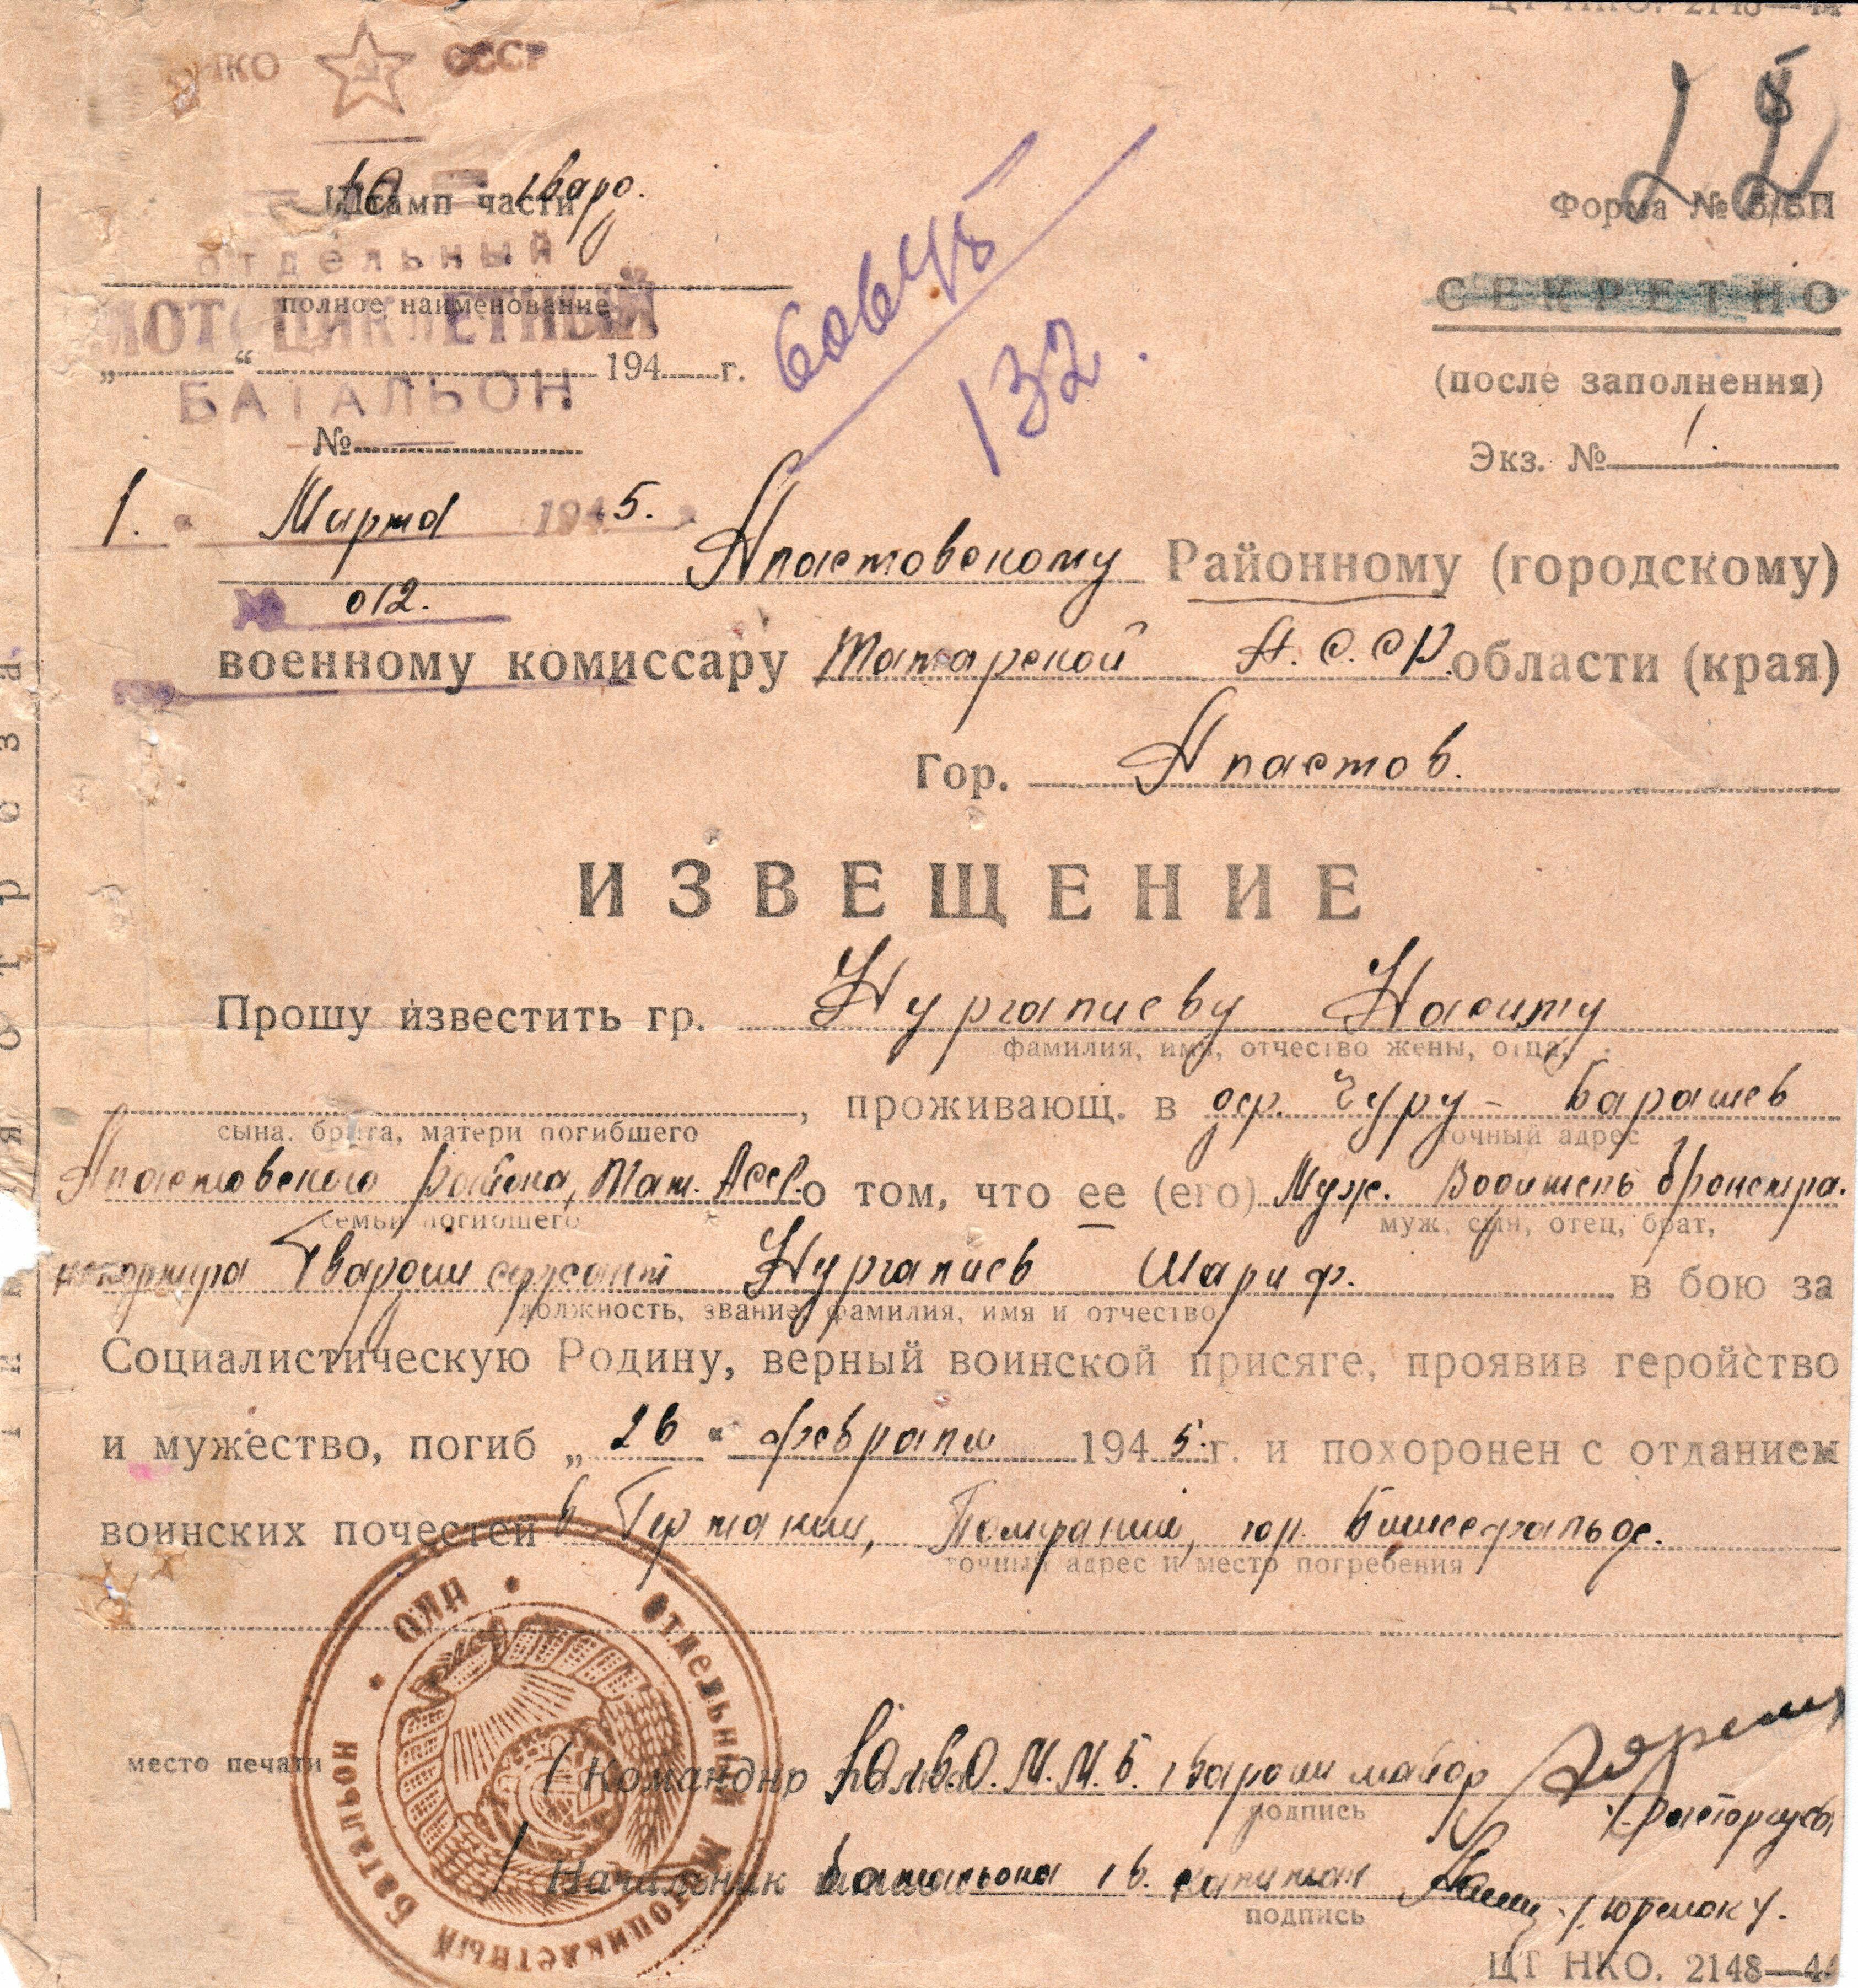 ЦТ НКО. 2148—44
НКО СССР
10 гвард.
Штамп части
Форма № Б/БП
отдельный
полное наименование
СЕКРЕТНО
МОТОЦИКЛЕТНЫЙ
„ “ 194 г.
60648
132.
(после заполнения)
БАТАЛЬОН
№
Экз. № 1.
1. " Марта 1945.
Апастовскому Районному (городскому)
№ 012.
военному комиссару Татарской А.С.СР. области (края)
Гор. Апастов.
ИЗВЕЩЕНИЕ
Прошу известить гр. Нургалиеву Насиму
фамилия, имя, отчество жены, отца,
, проживающ. в дер. Чуру-Барашев
сына, брата, матери погибшего точный адрес
Апастовского района, Тат. АССР. о том, что ее (его) Муж. Водитель бронетра.
семьи погибшего муж, сын, отец, брат,
нспортира Гвардии сержант Нургалиев Шариф. в бою за
должность, звание, фамилия, имя и отчество
Социалистическую Родину, верный воинской присяге, проявив геройство
и мужество, погиб „26" февраля 1945 г. и похоронен с отданием
воинских почестей в Германии, Померании, гор. Бишсефальде.
точный адрес и место погребения
Отдельный Мотоциклетный Батальон • НКО •
место печати
Командир О.М.Ц.Б. гвардии майор
подпись
Начальник батальона гв. капитан
подпись
ЦТ НКО. 2148—44
Линия отреза